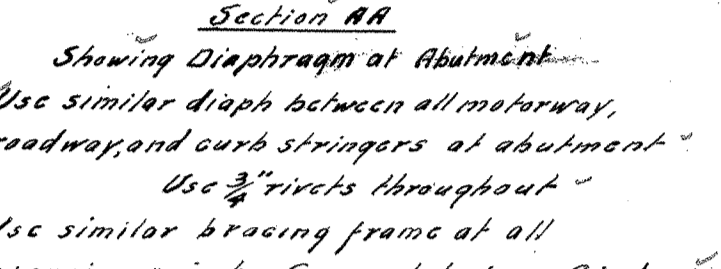 Section AA
Showing Diaphragm at Abutment
Use similar diaph between all motorway,
roadway, and curb stringers at abutment
Use 3/4" rivets throughout
Use similar bracing frame at all